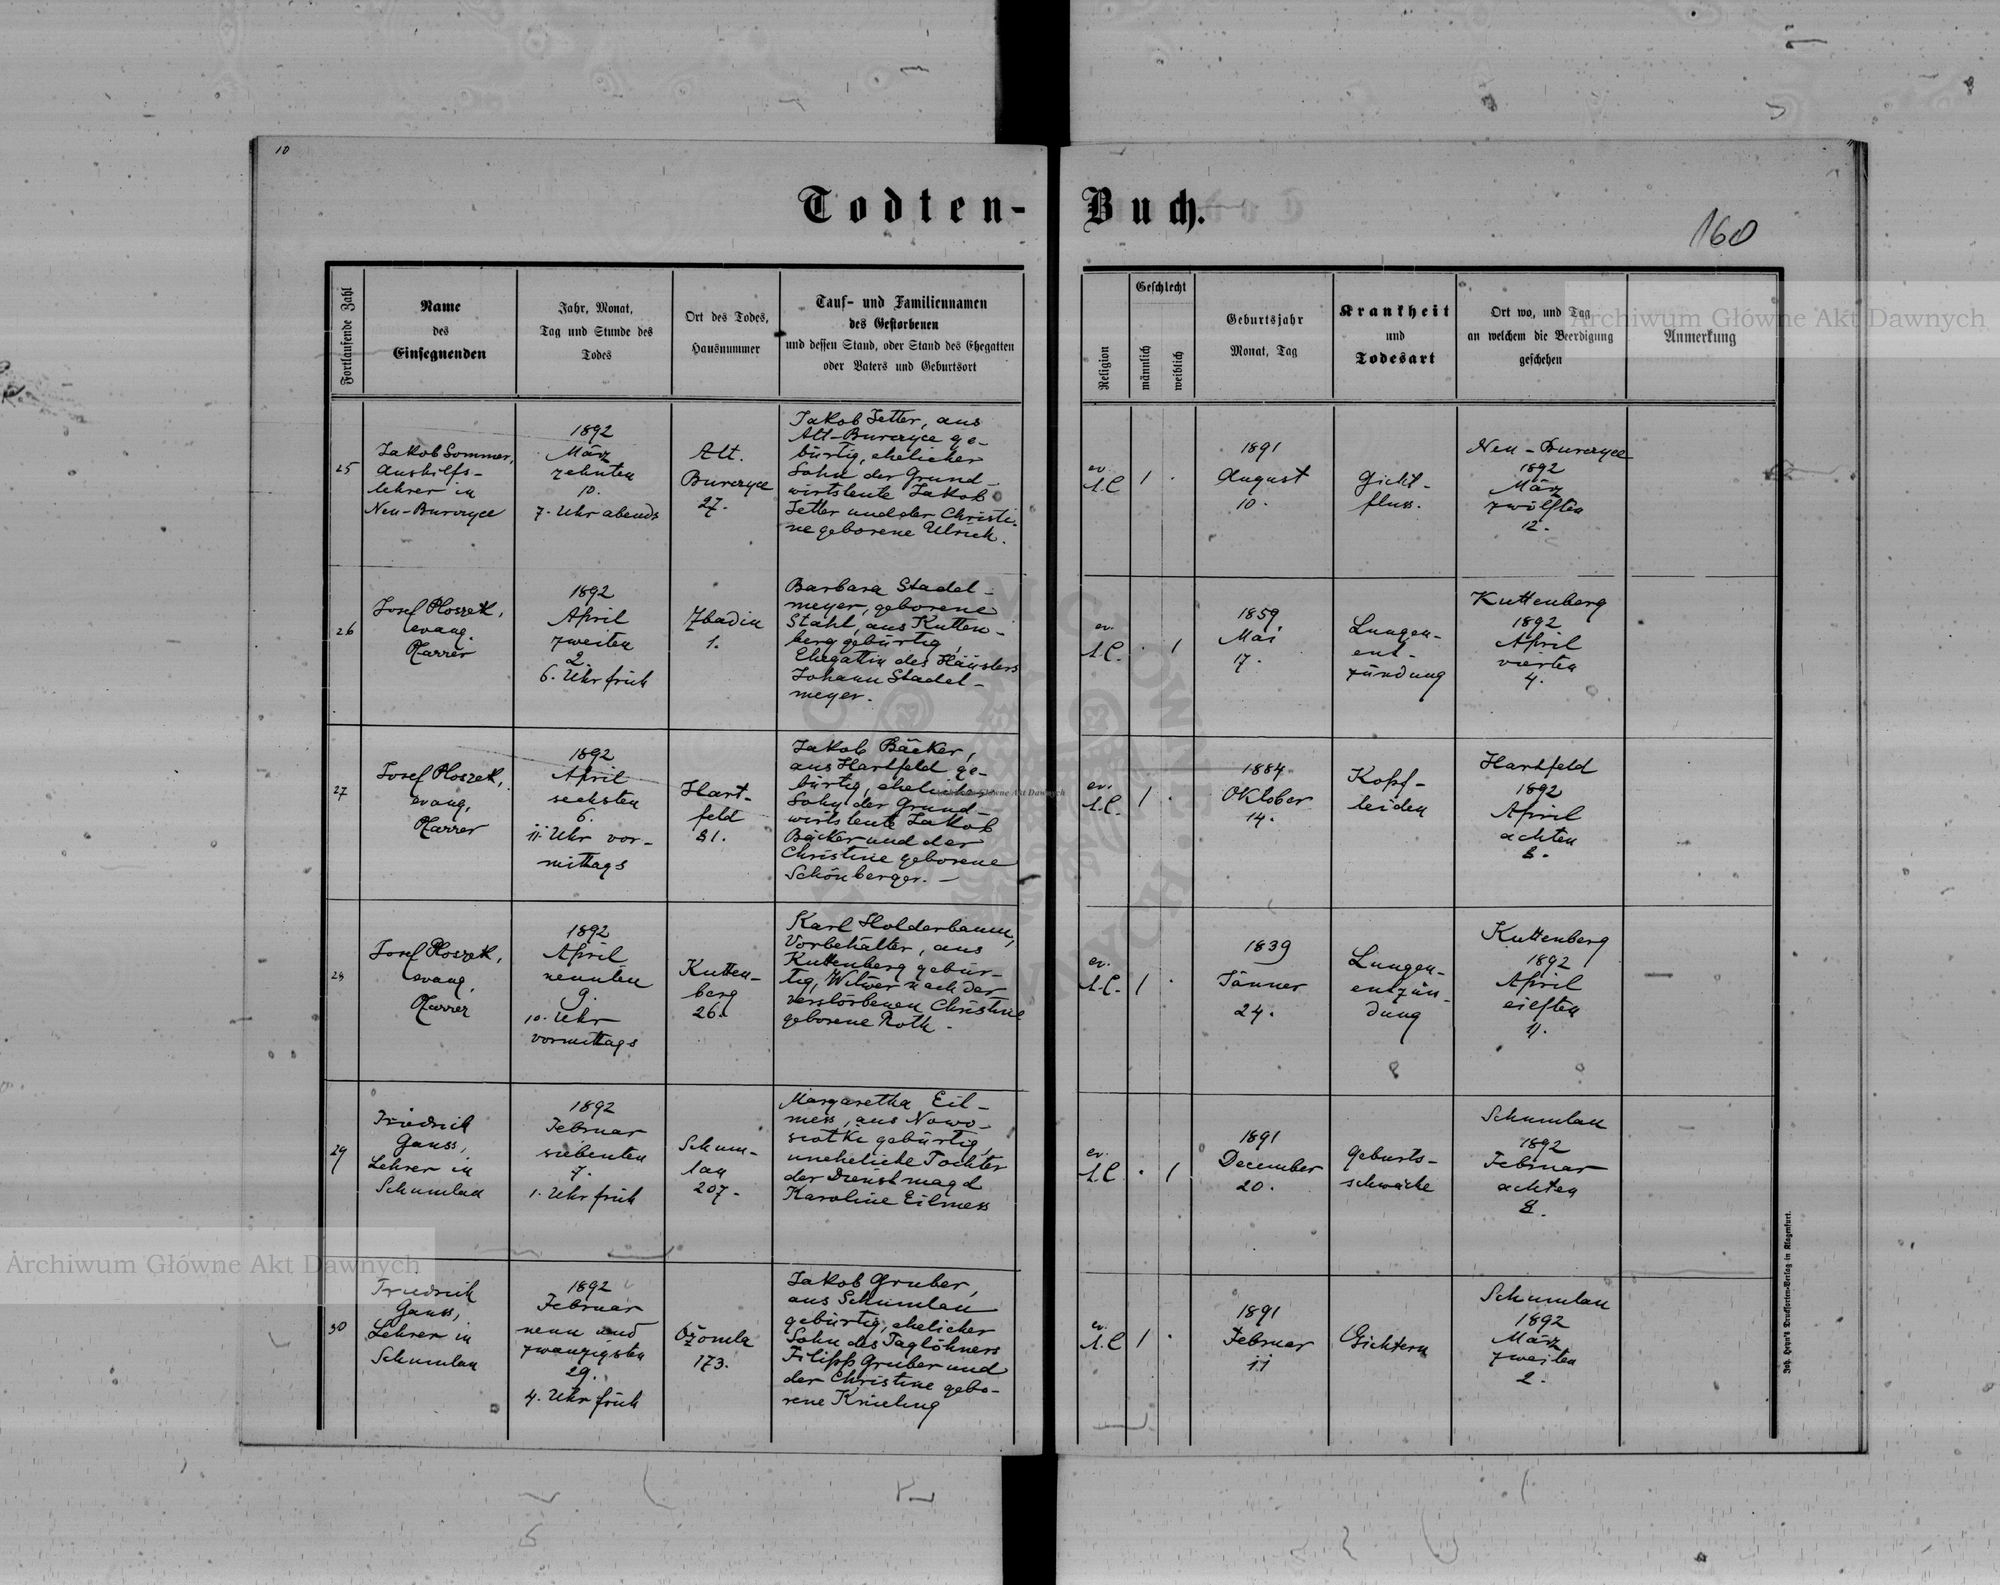 10
Todten-
Buch.
160
Fortlaufende Zahl
Name
des
Einsegnenden
Jahr, Monat,
Tag und Stunde des
Todes
Ort des Todes,
Hausnummer
Tauf- und Familiennamen
des Gestorbenen
und dessen Stand, oder Stand des Ehegatten
oder Vaters und Geburtsort
Religion
Geschlecht
männlich
weiblich
Geburtsjahr
Monat, Tag
Krankheit
und
Todesart
Ort wo, und Tag
an welchem die Beerdigung
geschehen
Anmerkung
25
Jakob Sommer,
Aushilfs-
lehrer in
Neu-Burczyce
1892
März
zehnten
10.
7. Uhr abends
Alt.
Burczyce
27.
Jakob Jetter, aus
Alt-Burczyce ge-
bürtig, ehelicher
Sohn der Grund-
wirtsleute Jakob
Jetter und der Christi-
ne geborene Ulrich.
ev.
A.C.
1
.
1891
August
10.
Gicht-
fluss.
Neu-Burczyce
1892
März
zwölften
12.
26
Josef Ploszek,
evang.
Pfarrer
1892
April
zweiten
2.
6. Uhr früh
Zbadin
1.
Barbara Stadel-
meyer, geborene
Stahl, aus Kutten-
berg gebürtig,
Ehegattin des Häuslers
Johann Stadel-
meyer.
ev.
A.C.
.
1
1859
Mai
17.
Lungen-
ent-
zündung
Kuttenberg
1892
April
vierten
4.
27
Josef Ploszek,
evang.
Pfarrer
1892
April
sechsten
6.
11. Uhr vor-
mittags
Hart-
feld
81.
Jakob Bäcker,
aus Hartfeld ge-
bürtig, ehelicher
Sohn der Grund-
wirtsleute Jakob
Bäcker und der
Christine geborene
Schönberger. -
ev.
A.C.
1
.
1884
Oktober
14.
Kopf-
leiden
Hartfeld
1892
April
achten
8.
28
Josef Ploszek,
evang.
Pfarrer
1892
April
neunten
9.
10. Uhr
vormittags
Kutten-
berg
26.
Karl Holderbaum,
Vorbehälter, aus
Kuttenberg gebür-
tig, Witwer nach der
verstorbenen Christine
geborene Roth.
ev.
A.C.
1
.
1839
Jänner
24.
Lungen-
entzün-
dung
Kuttenberg
1892
April
eilften
11.
29
Friedrich
Gauss,
Lehrer in
Schumlau
1892
Februar
siebenten
7.
1. Uhr früh
Schum-
lau
207.
Margaretha Eil-
mess, aus Nowo-
siotki gebürtig,
uneheliche Tochter
der Dienstmagd
Karoline Eilmess
ev.
A.C.
.
1
1891
December
20.
Geburts-
schwäche
Schumlau
1892
Februar
achten
8.
30
Friedrich
Gauss,
Lehrer in
Schumlau
1892
Februar
neun und
zwanzigsten
29.
4. Uhr früh
Ožomla
173.
Jakob Gruber,
aus Schumlau
gebürtig, ehelicher
Sohn des Taglöhners
Filipp Gruber und
der Christine gebo-
rene Knieling
ev.
A.C.
1
.
1891
Februar
11
Gichtern
Schumlau
1892
März
zweiten
2.
Joh. Heyn's Drucksorten-Verlag in Klagenfurt.
Archiwum Główne Akt Dawnych
Archiwum Główne Akt Dawnych
Archiwum Główne Akt Dawnych